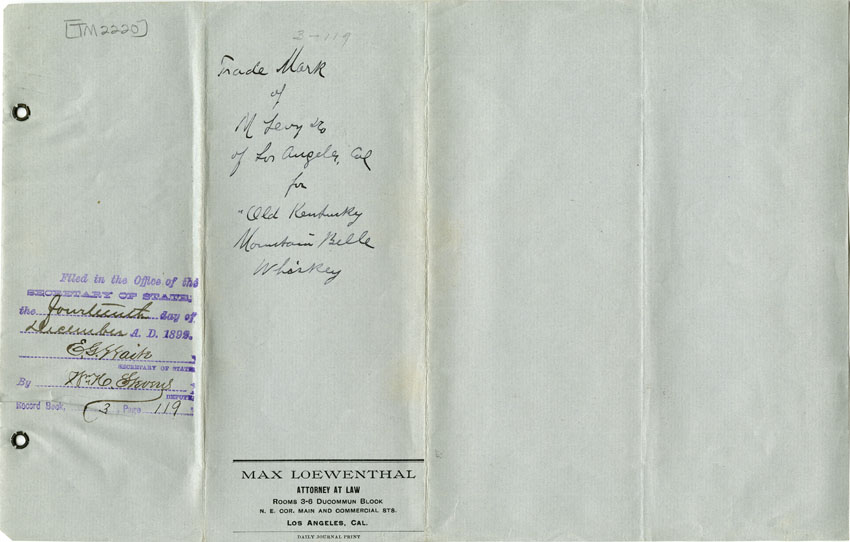 [TM2220]
3-119
Trade Mark
of
M Levy & Co
of Los Angeles, Cal
for
"Old Kentucky
Mountain Belle
Whiskey
Filed in the Office of the
SECRETARY OF STATE,
the fourteenth day of
December A. D. 1892.
E.G. Waite
SECRETARY OF STATE
By Wm H. Stevens
DEPUTY
Record Book, 3 Page 119
MAX LOEWENTHAL
ATTORNEY AT LAW
ROOMS 3-6 DUCOMMUN BLOCK
N. E. COR. MAIN AND COMMERCIAL STS.
LOS ANGELES, CAL.
DAILY JOURNAL PRINT